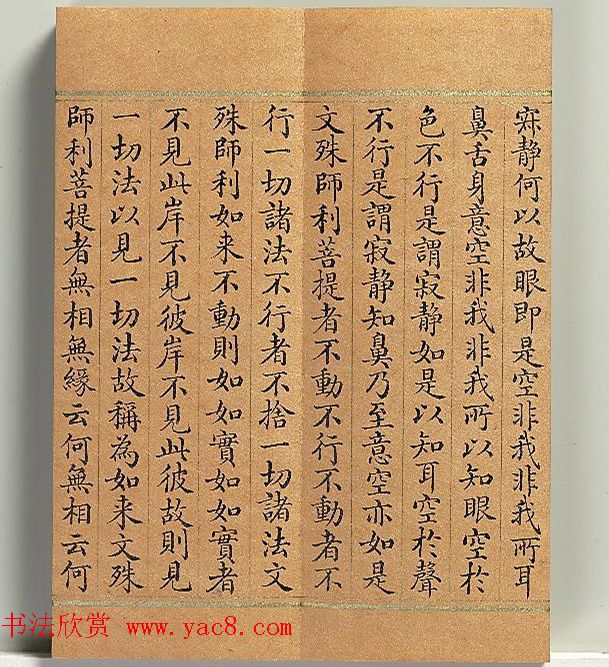 寐静何以故眼即是空非我非我所耳
鼻舌身意空非我非我所以知眼空於
色不行是謂寂静如是以知耳空於聲
不行是謂寂静知鼻乃至意空亦如是
文殊師利菩提者不動不行不動者不
行一切諸法不行者不捨一切諸法文
殊師利如来不動則如如實如如實者
不見此岸不見彼岸不見此彼故則見
一切法以見一切法故稱為如来文殊
師利菩提者無相無緣云何無相云何
书法欣赏 www.yac8.com